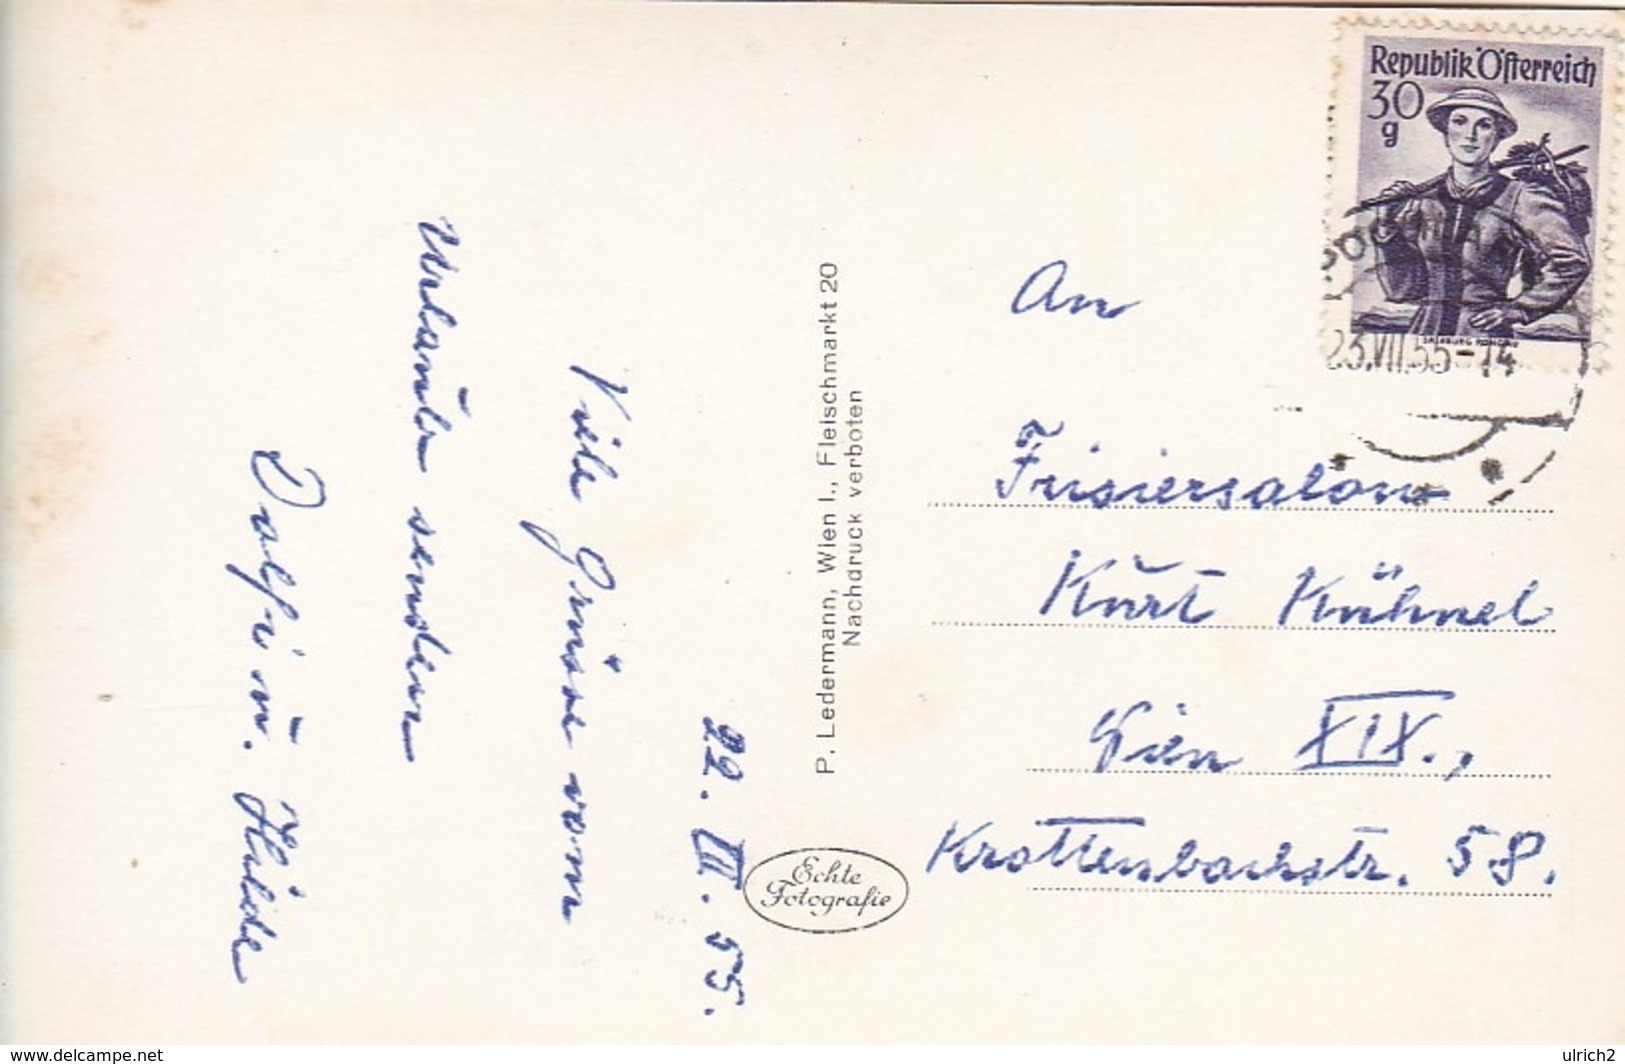 22. VII. 55.
Viele Grüsse vom
Urlaub senden
Dolfi u. Hilde
P. Ledermann, Wien I., Fleischmarkt 20
Nachdruck verboten
Echte
Fotografie
Republik Österreich
30
g
SALZBURG PONGAU
23.VII.55-14
An
Frisiersalon
Kurt Kühnel
Wien XIX.,
Krottenbachstr. 58.
www.delcampe.net
ulrich2